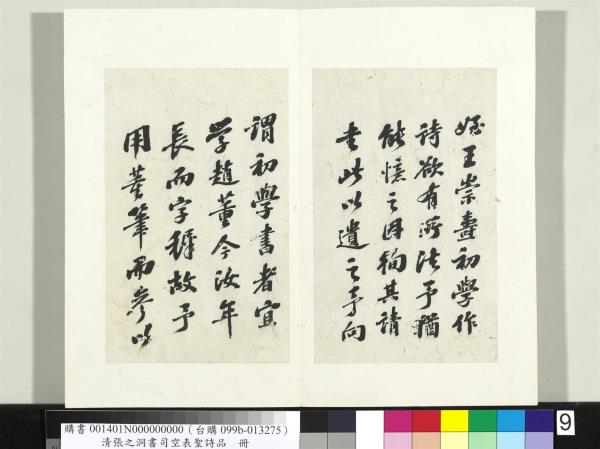 姪王崇壽初學作
詩欲有所法予猶
能憶之因徇其請
書此以遺之予向
謂初學書者宜
学趙董今汝年
長而字穉故予
用董筆而參以
購書 001401N000000000（台購 099b-013275）
清張之洞書司空表聖詩品　冊
9